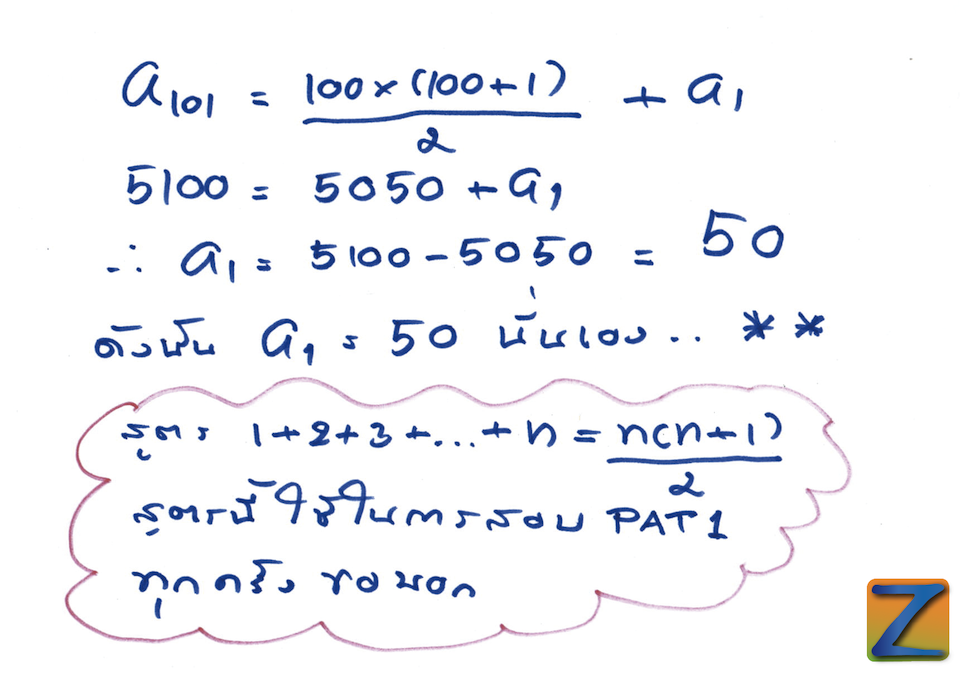 a₁₀₁ = 100×(100+1)/2 + a₁
5100 = 5050 + a₁
∴ a₁ = 5100 - 5050 = 50
ดังนั้น a₁ = 50 นั่นเอง.. **
สูตร 1+2+3+...+n = n(n+1)/2
สูตรนี้ใช้ในการสอบ PAT1
ทุกครั้ง ขอบอก
Z